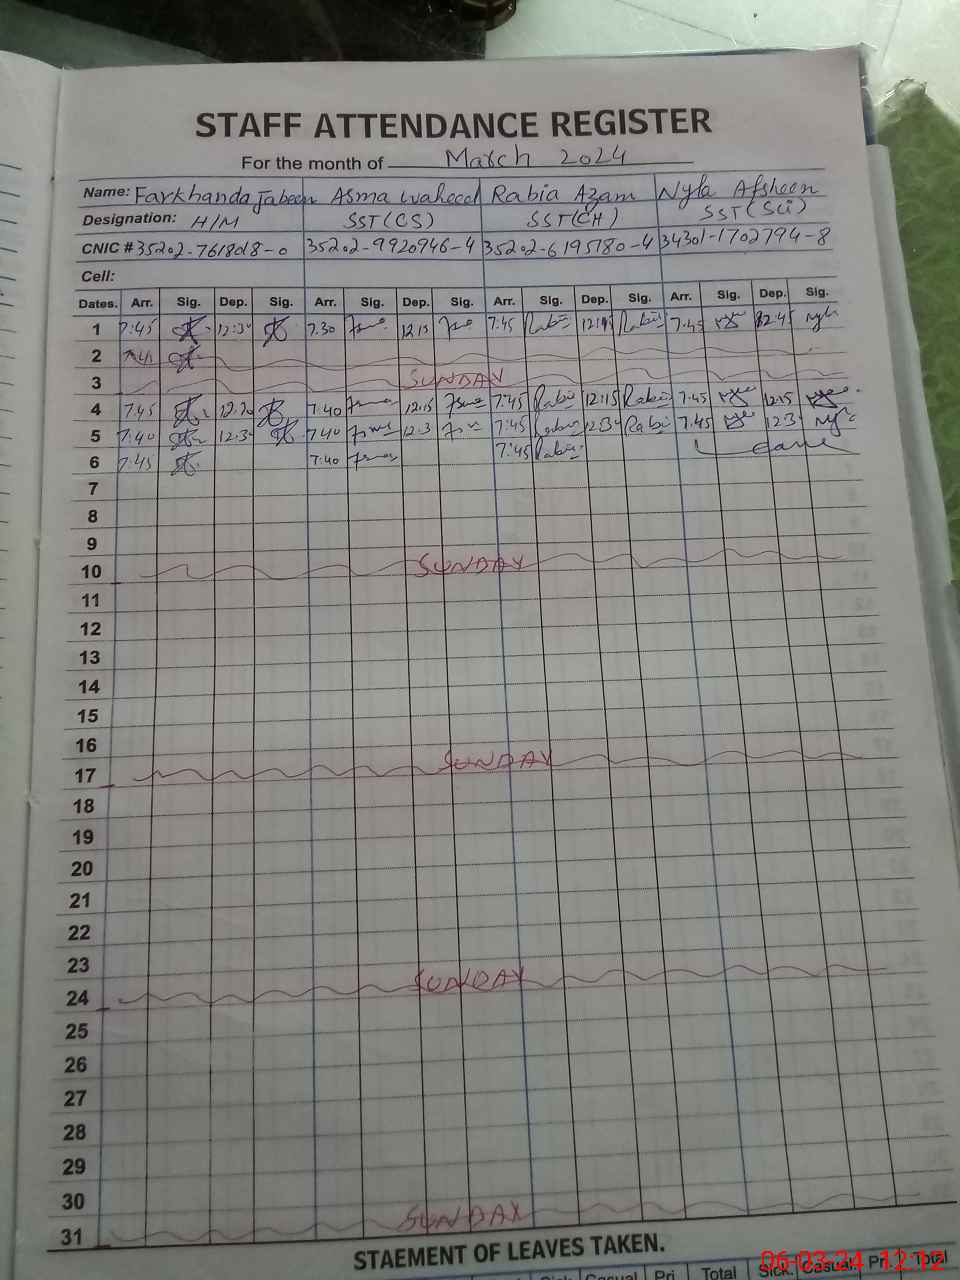 STAFF ATTENDANCE REGISTER
For the month of March 2024
Name: Farkhanda Jabeen Asma Waheed Rabia Azam Nyla Afsheen
Designation: H/M SST(CS) SST(CH) SST(Sci)
CNIC # 35202-7618018-0 35202-9920946-4 35202-6195180-4 34301-1702794-8
Cell:
Dates. Arr. Sig. Dep. Sig. Arr. Sig. Dep. Sig. Arr. Sig. Dep. Sig. Arr. Sig. Dep. Sig.
1 7:45 12:30 7.30 12.15 7:45 Rabia 12:15 Rabia 7.45 12.45 Nyla
2
3 SUNDAY
4 7:45 12.20 7:40 12.15 7:45 Rabia 12:15 Rabia 7.45 12.15
5 7:40 12:30 7:40 12:3 7:45 Rabia 12:30 Rabia 7.45 12.30
6 7:45 7:40 7:45 Rabia
7
8
9
10 SUNDAY
11
12
13
14
15
16
17 SUNDAY
18
19
20
21
22
23
24 SUNDAY
25
26
27
28
29
30
31 SUNDAY
STAEMENT OF LEAVES TAKEN.
Sick Casual Pri Total Sick. Casual Pri Total
06-03-24 12:12